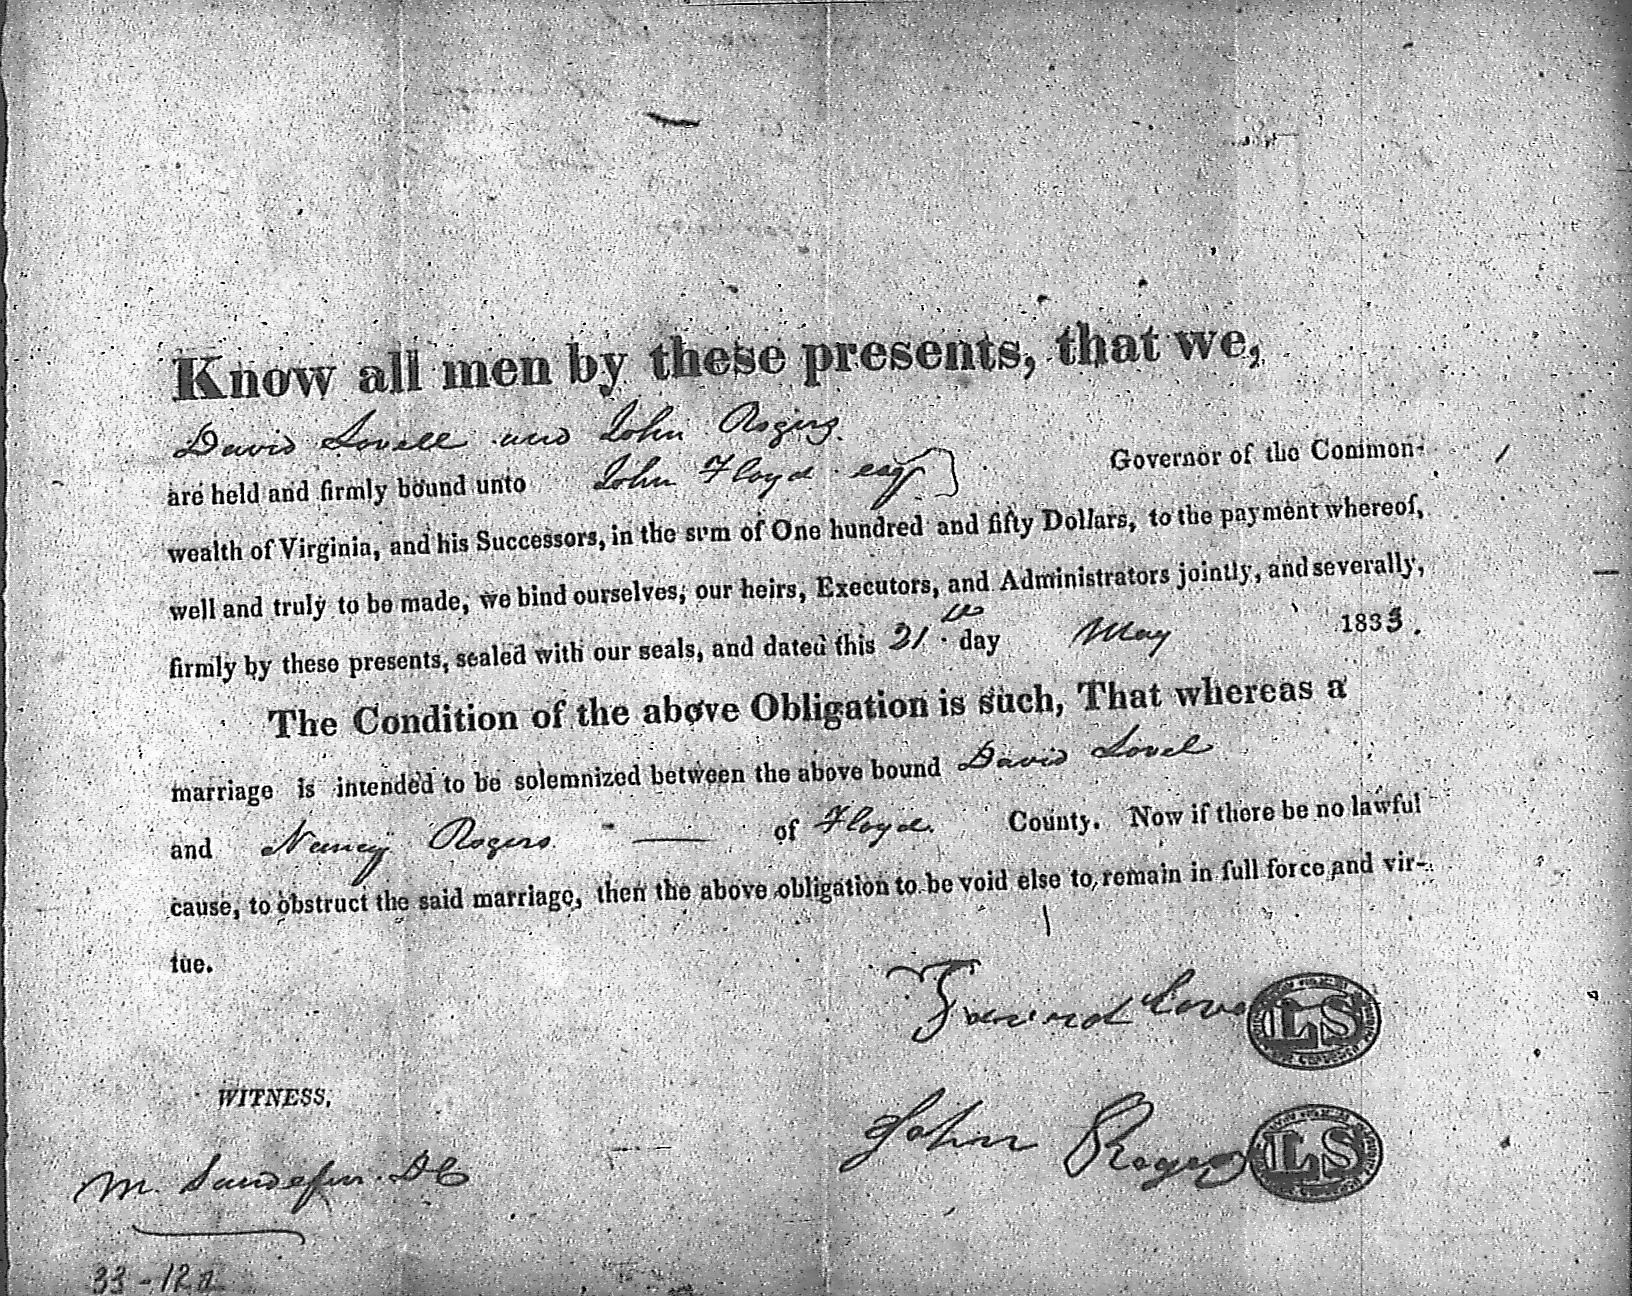 Know all men by these presents, that we,
David Lovell and John Rogers.
are held and firmly bound unto John Floyd esqr Governor of the Common-
wealth of Virginia, and his Successors, in the sum of One hundred and fifty Dollars, to the payment whereof,
well and truly to be made, we bind ourselves, our heirs, Executors, and Administrators jointly, and severally,
firmly by these presents, sealed with our seals, and dated this 21 day May 1833.
The Condition of the above Obligation is such, That whereas a
marriage is intended to be solemnized between the above bound David Lovel
and Nancy Rogers — of Floyd. County. Now if there be no lawful
cause, to obstruct the said marriage, then the above obligation to be void else to remain in full force and vir-
tue.
LS
WITNESS,
John Rogers LS
M. DC
33-12a